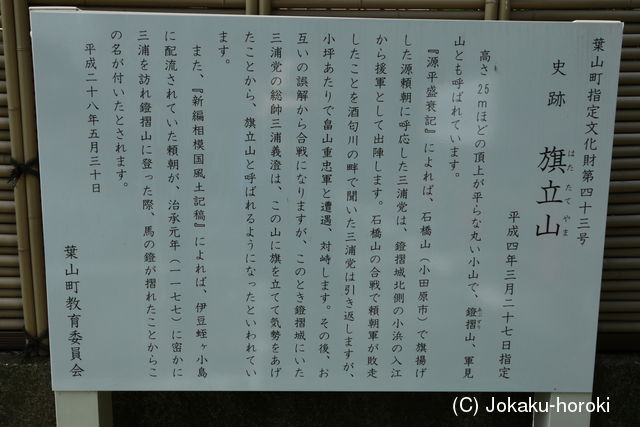 葉山町指定文化財第四十三号
史跡 旗立山
はた たて やま
平成四年三月二十七日指定
高さ25mほどの頂上が平らな丸い小山で、鐙摺山、軍見
あぶずり
山とも呼ばれています。
『源平盛衰記』によれば、石橋山（小田原市）で旗揚げ
した源頼朝に呼応した三浦党は、鐙摺城北側の小浜の入江
から後軍として出陣します。石橋山の合戦で頼朝軍が敗走
したことを酒匂川の畔で聞いた三浦党は引き返しますが、
小坪あたりで畠山重忠軍と遭遇、対峙します。その後、お
互いの誤解から合戦になりますが、このとき鐙摺城にいた
三浦党の総帥三浦義澄は、この山に旗を立てて気勢をあげ
たことから、旗立山と呼ばれるようになったといわれてい
ます。
また、『新編相模国風土記稿』によれば、伊豆蛭ヶ小島
に配流されていた頼朝が、治承元年（一一七七）に密かに
三浦を訪れ鐙摺山に登った際、馬の鐙が摺れたことからこ
の名が付いたとされます。
平成二十八年五月三十日
葉山町教育委員会
(C) Jokaku-horoki